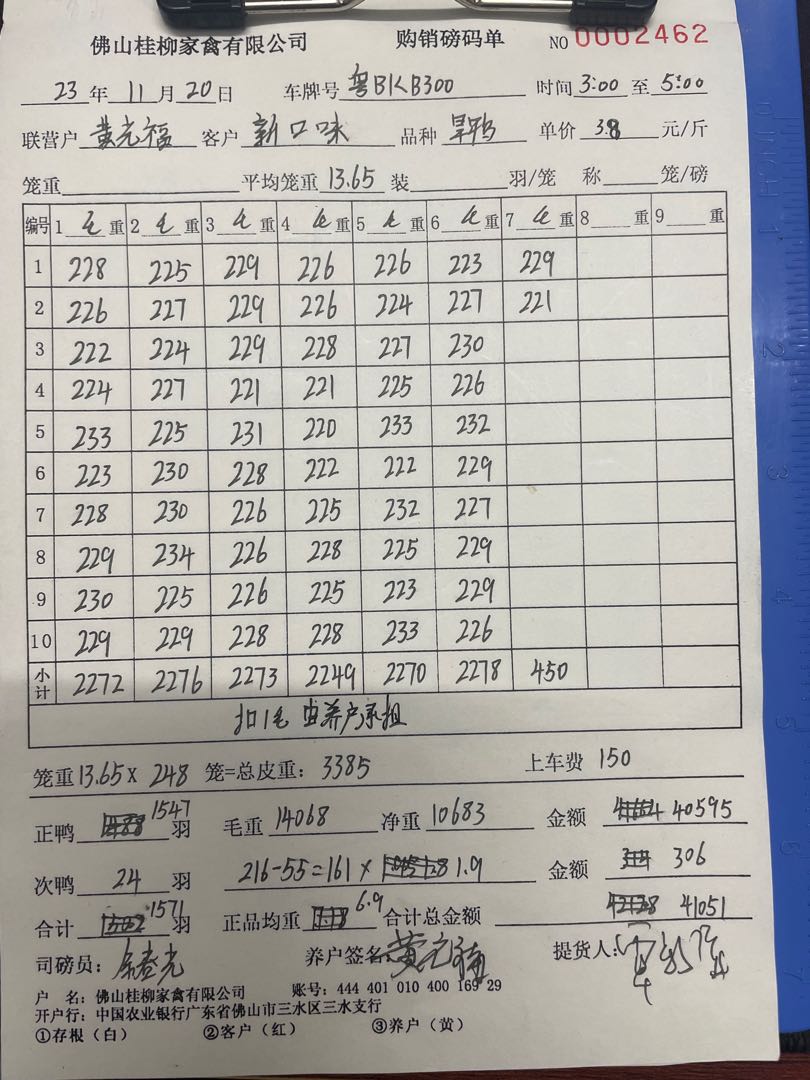 佛山桂柳家禽有限公司 购销磅码单 NO 0002462
23 年 11 月 20 日 车牌号 粤BKB300 时间 3:00 至 5:00
联营户 黄元福 客户 新口味 品种 旱鸭 单价 3.8 元/斤
笼重 平均笼重 13.65 装 羽/笼 称 笼/磅
编号 1 毛 重 2 毛 重 3 毛 重 4 毛 重 5 毛 重 6 毛 重 7 毛 重 8 重 9 重
1 228 225 229 226 226 223 229
2 226 227 229 226 224 227 221
3 222 224 229 228 227 230
4 224 227 221 221 225 226
5 233 225 231 220 233 232
6 223 230 228 222 222 229
7 228 230 226 225 232 227
8 229 234 226 228 225 229
9 230 225 226 225 223 229
10 229 229 228 228 233 226
小计 2272 2276 2273 2249 2270 2278 450
扣1毛 由养户承担
笼重 13.65 x 248 笼=总皮重: 3385 上车费 150
正鸭 1547 羽 毛重 14068 净重 10683 金额 40595
次鸭 24 羽 216-55=161 x 1.9 金额 306
合计 1571 正品均重 6.9 合计总金额 41051
司磅员: 养户签名: 黄元福 提货人:
户 名: 佛山桂柳家禽有限公司 账号: 444 401 010 400 169 29
开户行: 中国农业银行广东省佛山市三水区三水支行
①存根（白） ②客户（红） ③养户（黄）